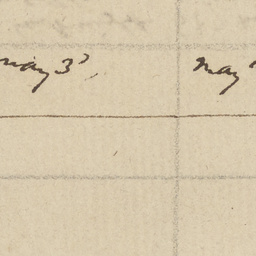 May 3d May